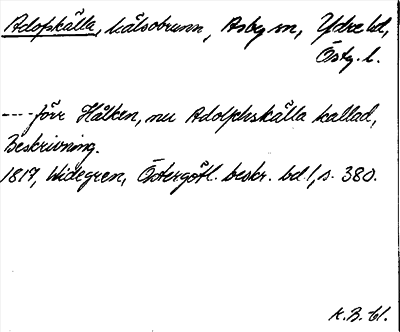 Adofskälla, hälsobrunn, Asby sn, Ydre hd,
Östg. l.
--- förr Hålken, nu Adolphskälla kallad,
Beskrivning.
1817, Widegren, Östergötl. beskr. bd 1, s. 380.
K.B. 61.